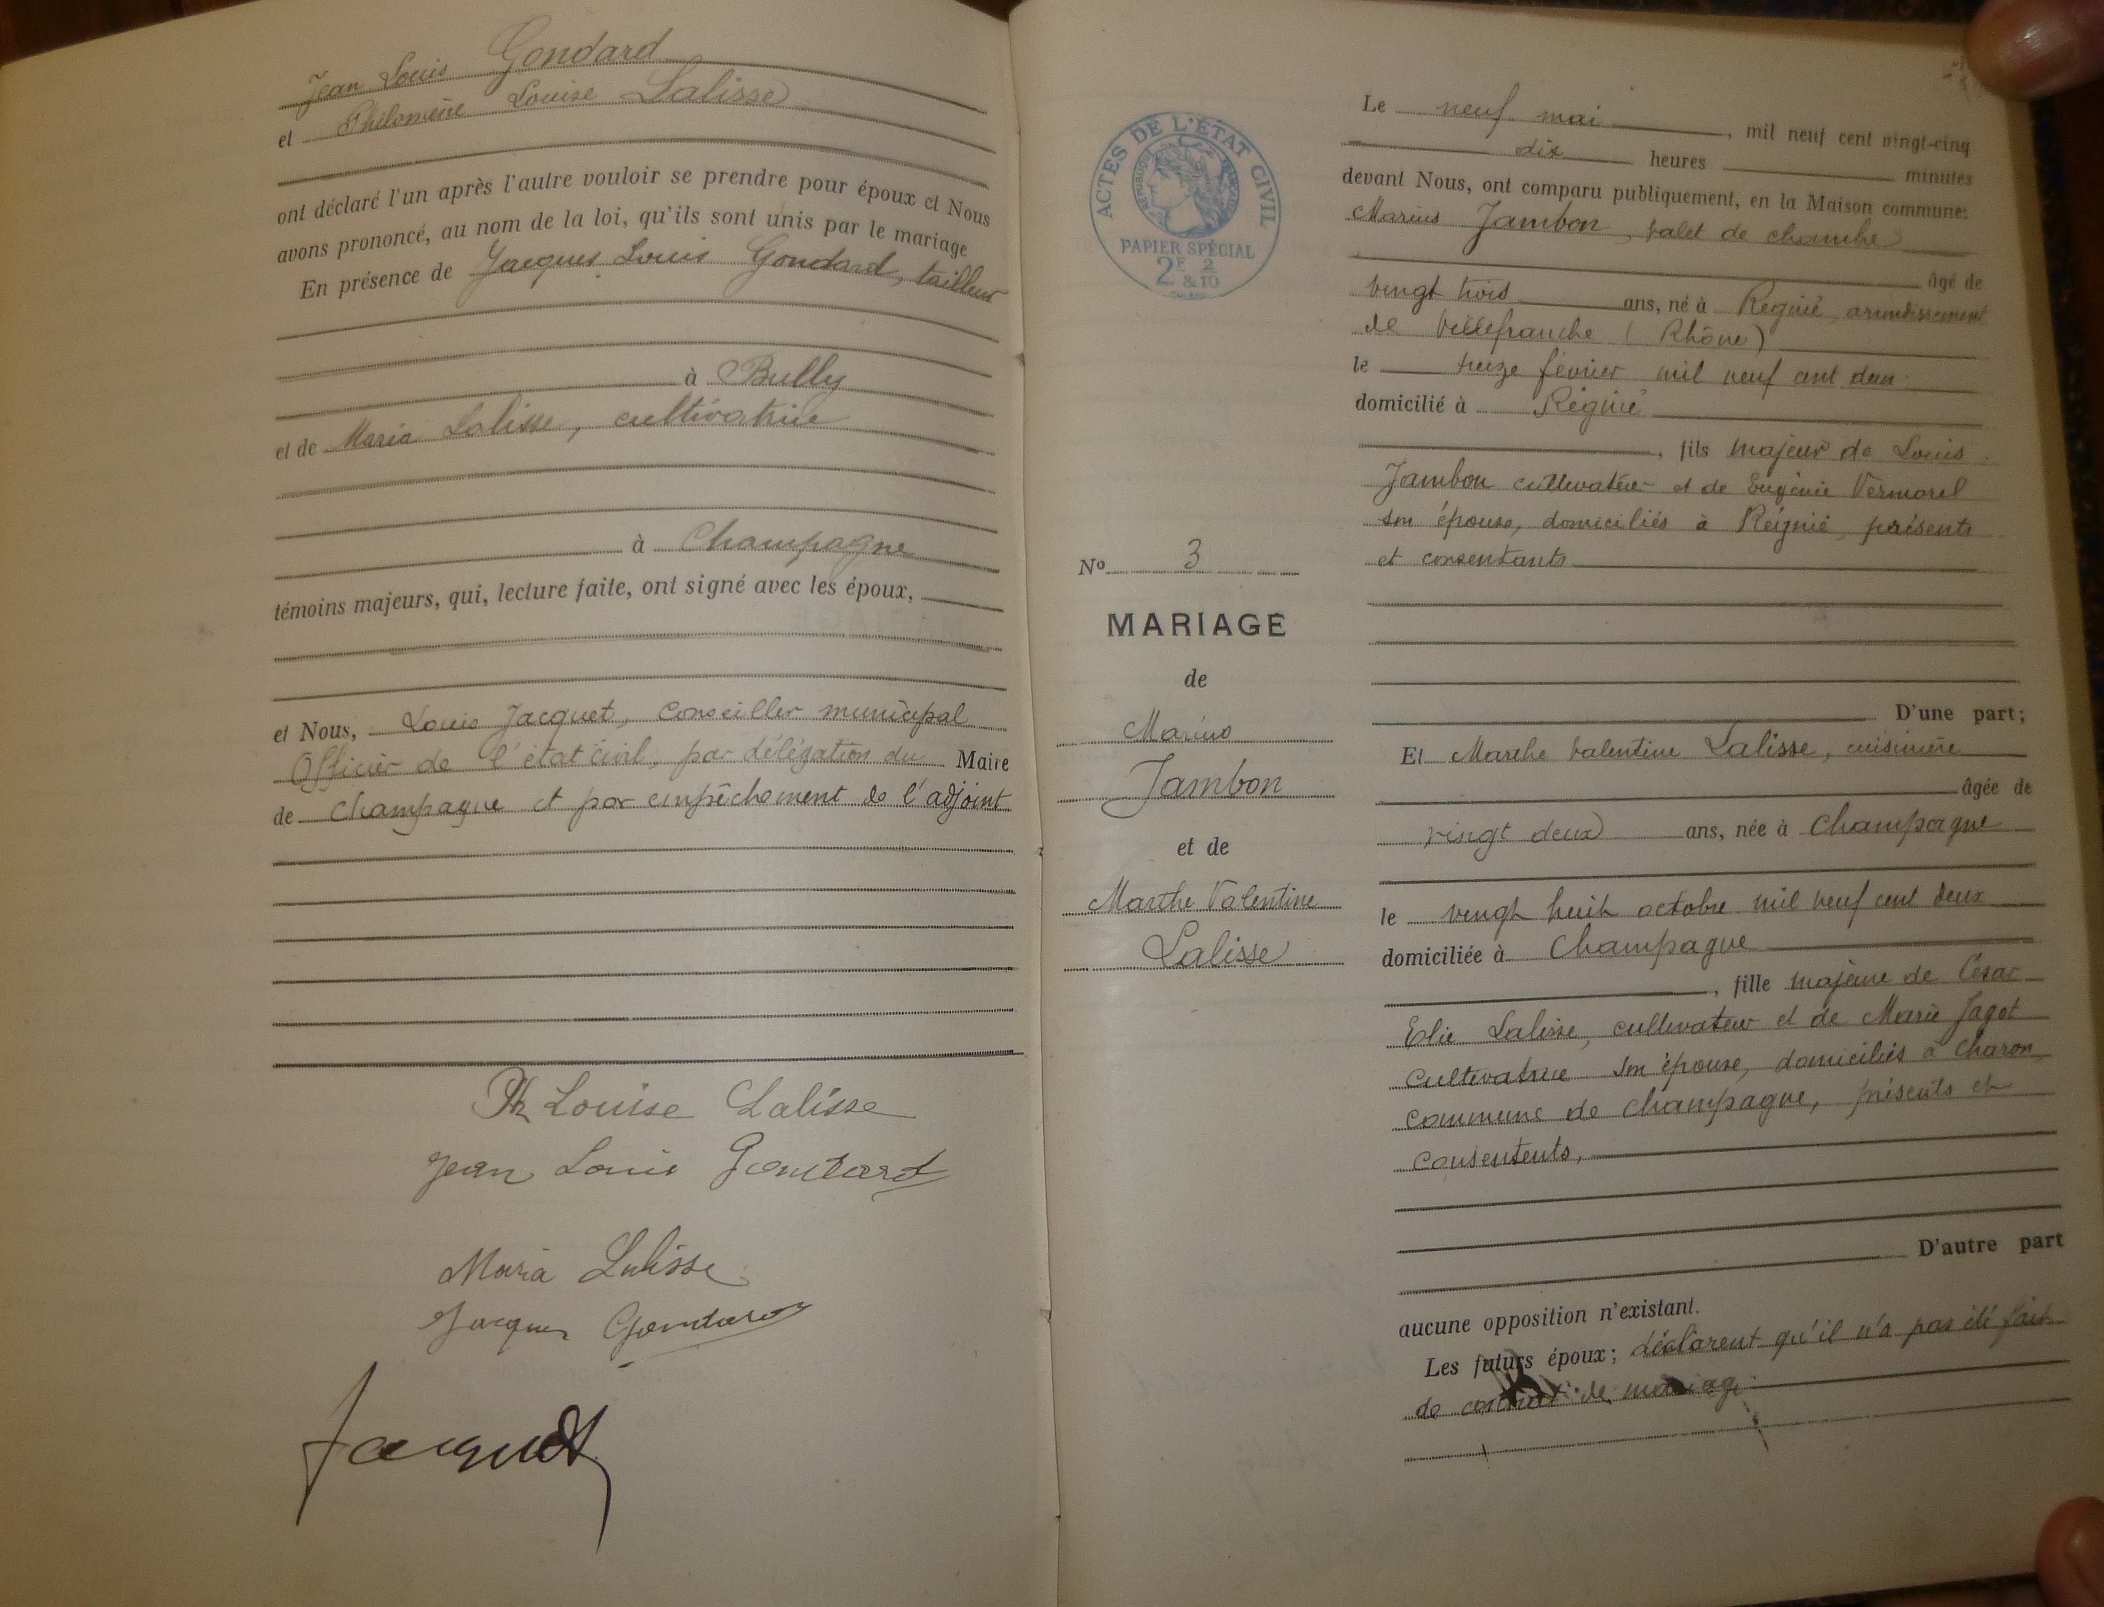 Jean Louis Gondard
et Philomène Louise Lalisse
ont déclaré l'un après l'autre vouloir se prendre pour époux et Nous
avons prononcé, au nom de la loi, qu'ils sont unis par le mariage
En présence de Jacques Louis Gondard, tailleur
à Bully
et de Maria Lalisse, cultivatrice
à Champagne
témoins majeurs, qui, lecture faite, ont signé avec les époux,
et Nous, Louis Jacquet, Conseiller municipal
Officier de l'état civil, par délégation du Maire
de Champagne et par empêchement de l'adjoint
Ph Louise Lalisse
Jean Louis Gondard
Maria Lalisse
Jacques Gondard
Jacquet
ACTES DE L'ÉTAT CIVIL
PAPIER SPÉCIAL
2E 2
& 10
No 3
MARIAGE
de
Marius
Jambon
et de
Marthe Valentine
Lalisse
Le neuf mai, mil neuf cent vingt-cinq
dix heures minutes
devant Nous, ont comparu publiquement, en la Maison commune:
Marius Jambon, valet de chambre
âgé de
vingt trois ans, né à Régnié, arrondissement
de Villefranche (Rhône)
le treize février mil neuf cent deux
domicilié à Régnié
, fils majeur de Louis
Jambon cultivateur et de Eugénie Vermorel
son épouse, domiciliés à Régnié, présents
et consentants
D'une part;
Et Marthe Valentine Lalisse, cuisinière
âgée de
vingt deux ans, née à Champagne
le vingt huit octobre mil neuf cent deux
domiciliée à Champagne
, fille majeure de Cesar
Elie Lalisse, cultivateur et de Marie Jagot
cultivatrice son épouse, domiciliés à Charon
commune de Champagne, présents et
consentents,
D'autre part
aucune opposition n'existant.
Les futurs époux; déclarent qu'il n'a pas été fait
de contrat de mariage